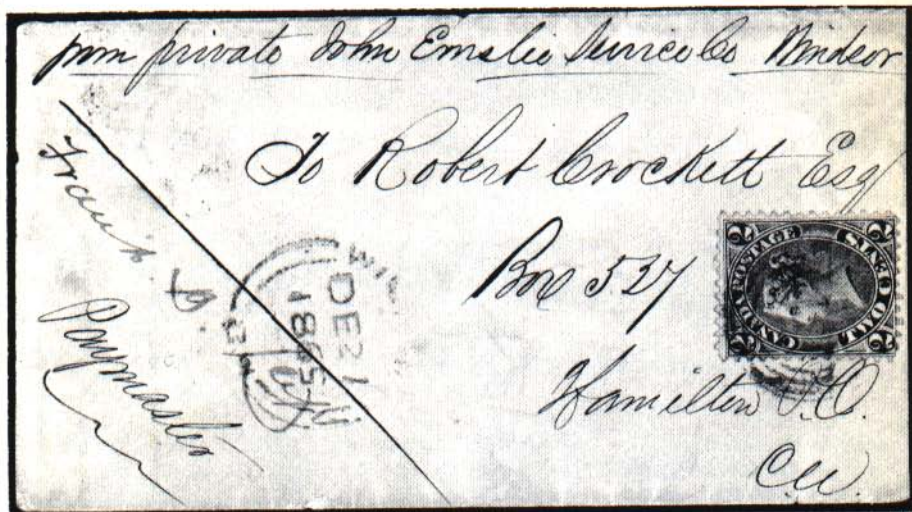 from private John Emslie Service Co Windsor
To Robert Crockett Esq
Box 527
Hamilton P.O.
CW.
Paymaster
DE 21
1865
CANADA POSTAGE
TWO CENTS
2
2
2
2